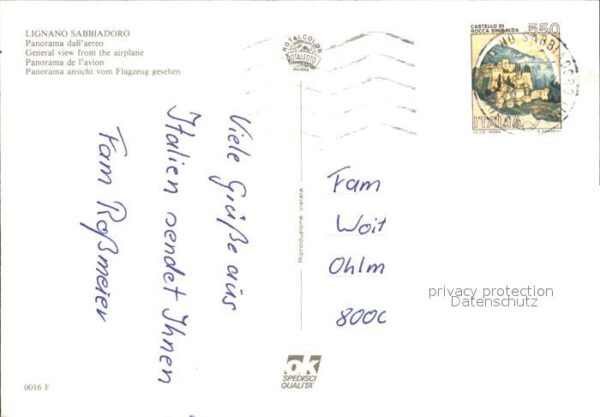 LIGNANO SABBIADORO
Panorama dall'aereo
General view from the airplane
Panorama de l'avion
Panorama ansicht vom Flugzeug gesehen
ROTALCOLOR
ROTALFOTO
MILANO
CASTELLO DI
ROCCA SINIBALDA
550
ITALIA
Viele Grüße aus
Italien sendet Ihnen
Fam Roßmeier
Riproduzione vietata
Fam
Woit
Ohlm
8000
privacy protection
Datenschutz
ok
SPEDISCI
QUALITÀ
0016 F